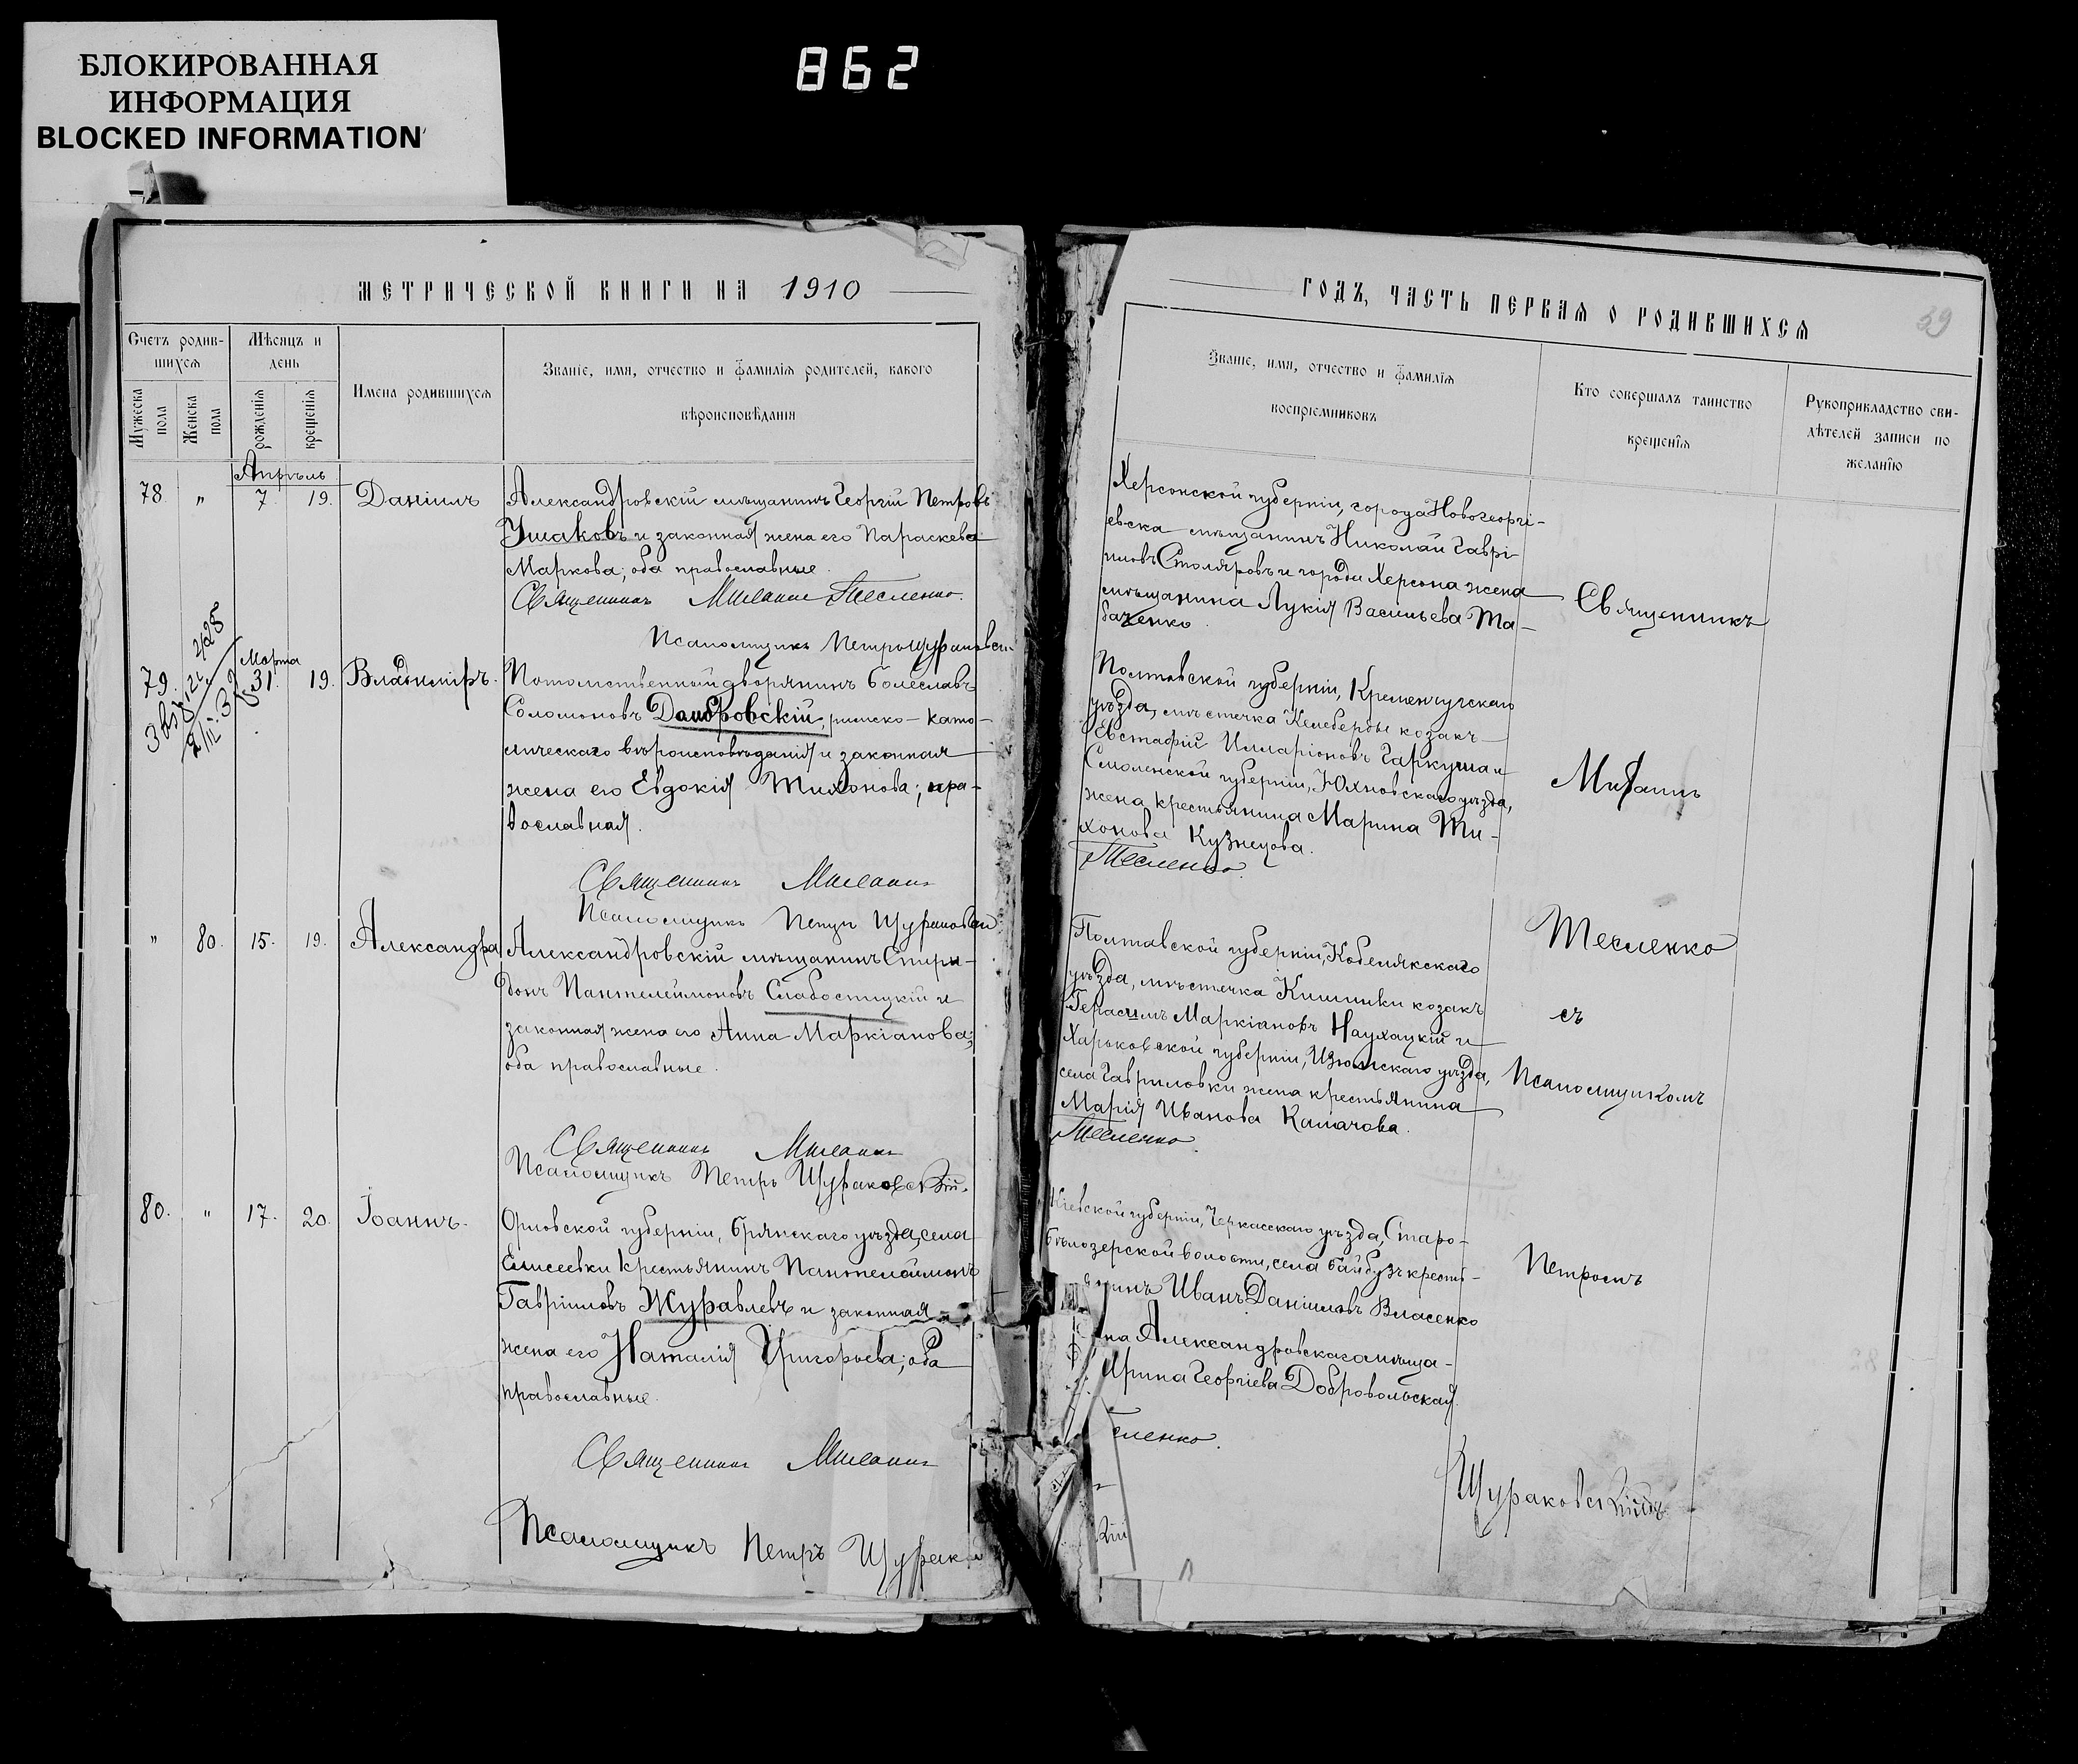 БЛОКИРОВАННАЯ
ИНФОРМАЦИЯ
BLOCKED INFORMATION
862
МЕТРИЧЕСКОЙ КНИГИ НА 1910
Счетъ родив-
шихся
Мѣсяцъ и
день
Мужеска
пола
Женска
пола
рожденія
крещенія
Имена родившихся
Званіе, имя, отчество и фамилія родителей, какого
вѣроисповѣданія
Апрѣль
78 „ 7 19. Даніилъ
Александровскій мѣщанинъ Георгій Петровъ
Ушаковъ и законная жена его Параскева
Маркова; оба православные.
Священникъ Тесленко.
Псаломщикъ Петръ
Марта
79. 31. 19. Владиміръ.
Потомственный дворянинъ Болеславъ
Соломоновъ Домбровскій, римско-като-
лическаго вѣроисповѣданія и законная
жена его Евдокія Тихонова; пра-
вославная.
Священникъ
Псаломщикъ Петръ
„ 80. 15. 19. Александра
Александровскій мѣщанинъ Спири-
донъ Пантелеимоновъ Слабостицкій и
законная жена его Анна Маркіанова;
оба православные.
Священникъ
Псаломщикъ Петръ Щураковскій.
80. „ 17. 20. Іоаннъ.
Орловской губерніи, Брянскаго уѣзда, села
Елисеевки крестьянинъ Пантелеимонъ
Гавріиловъ Журавлевъ и законная
жена его Наталія Григорьева; оба
православные.
Священникъ
Псаломщикъ Петръ
ГОДЪ, ЧАСТЬ ПЕРВАЯ О РОДИВШИХСЯ
39
Званіе, имя, отчество и фамилія
воспріемниковъ
Кто совершалъ таинство
крещенія
Рукоприкладство сви-
дѣтелей записи по
желанію
Херсонской губерніи, города Новогеоргі-
евска мѣщанинъ Николай Гаврі-
иловъ Столяровъ и города Херсона жена
мѣщанина Лукія Васильева Та-
Полтавской губерніи, Кременчугскаго
уѣзда, мѣстечка Келеберды козакъ
Евстафій Илларіоновъ Гаркуша и
Смоленской губерніи, Юхновскаго уѣзда,
жена крестьянина Марина Ти-
хонова Кузнецова.
Тесленко.
Полтавской губерніи, Кобелякскаго
уѣзда, мѣстечка Кишинки козакъ
Герасимъ Маркіановъ Наухацкій и
Харьковской губерніи, Изюмскаго уѣзда,
села Гавриловки жена крестьянина
Марія Иванова Калачова.
Тесленко.
Кіевской губерніи, Черкасскаго уѣзда, Старо-
бѣлозерской волости, села Байбузъ кресть-
Иванъ Даніиловъ Власенко
на Александровскаго мѣща-
Ирина Георгіева Добровольская.
Священникъ
Тесленко
съ
Псаломщикомъ
Петромъ
Щураковскимъ